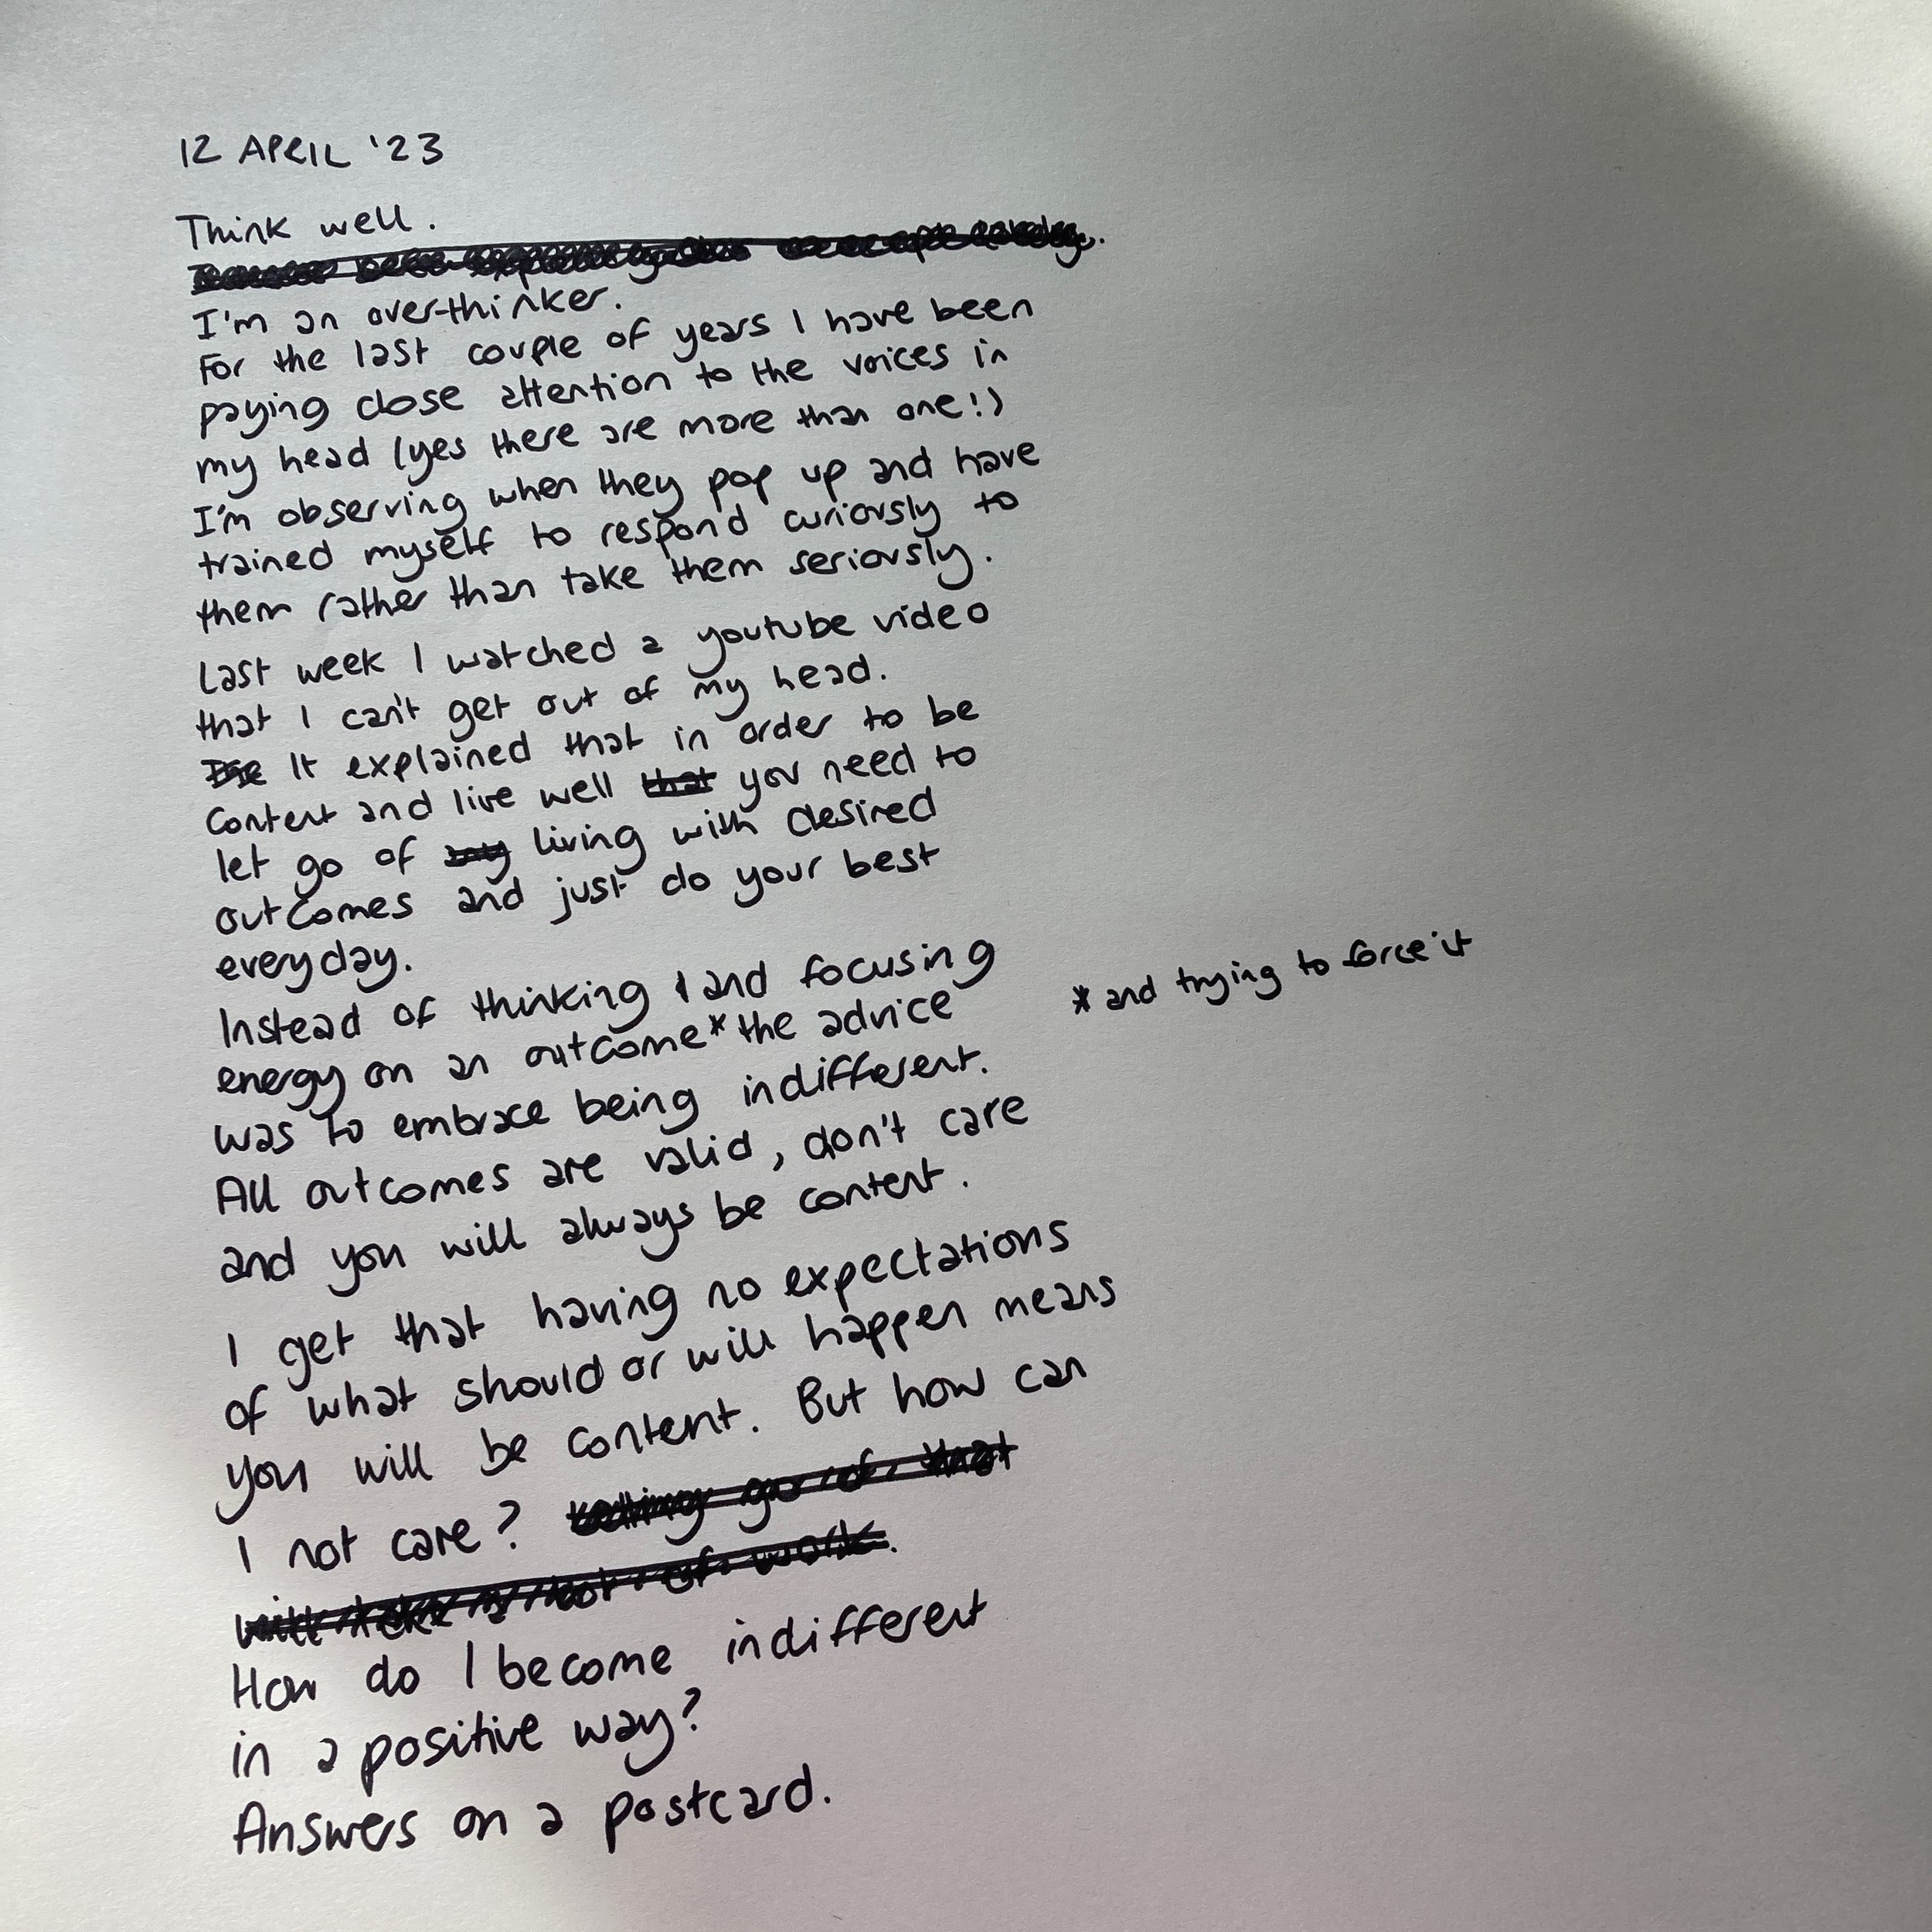 12 APRIL '23
Think well.
I'm an over-thinker.
For the last couple of years I have been
paying close attention to the voices in
my head (yes there are more than one!)
I'm observing when they pop up and have
trained myself to respond curiously to
them rather than take them seriously.
Last week I watched a youtube video
that I can't get out of my head.
It explained that in order to be
content and live well that you need to
let go of my living with desired
outcomes and just do your best
everyday.
Instead of thinking and focusing
energy on an outcome* the advice
* and trying to force it
was to embrace being indifferent.
All outcomes are valid, don't care
and you will always be content.
I get that having no expectations
of what should or will happen means
you will be content. But how can
I not care?
How do I become indifferent
in a positive way?
Answers on a postcard.